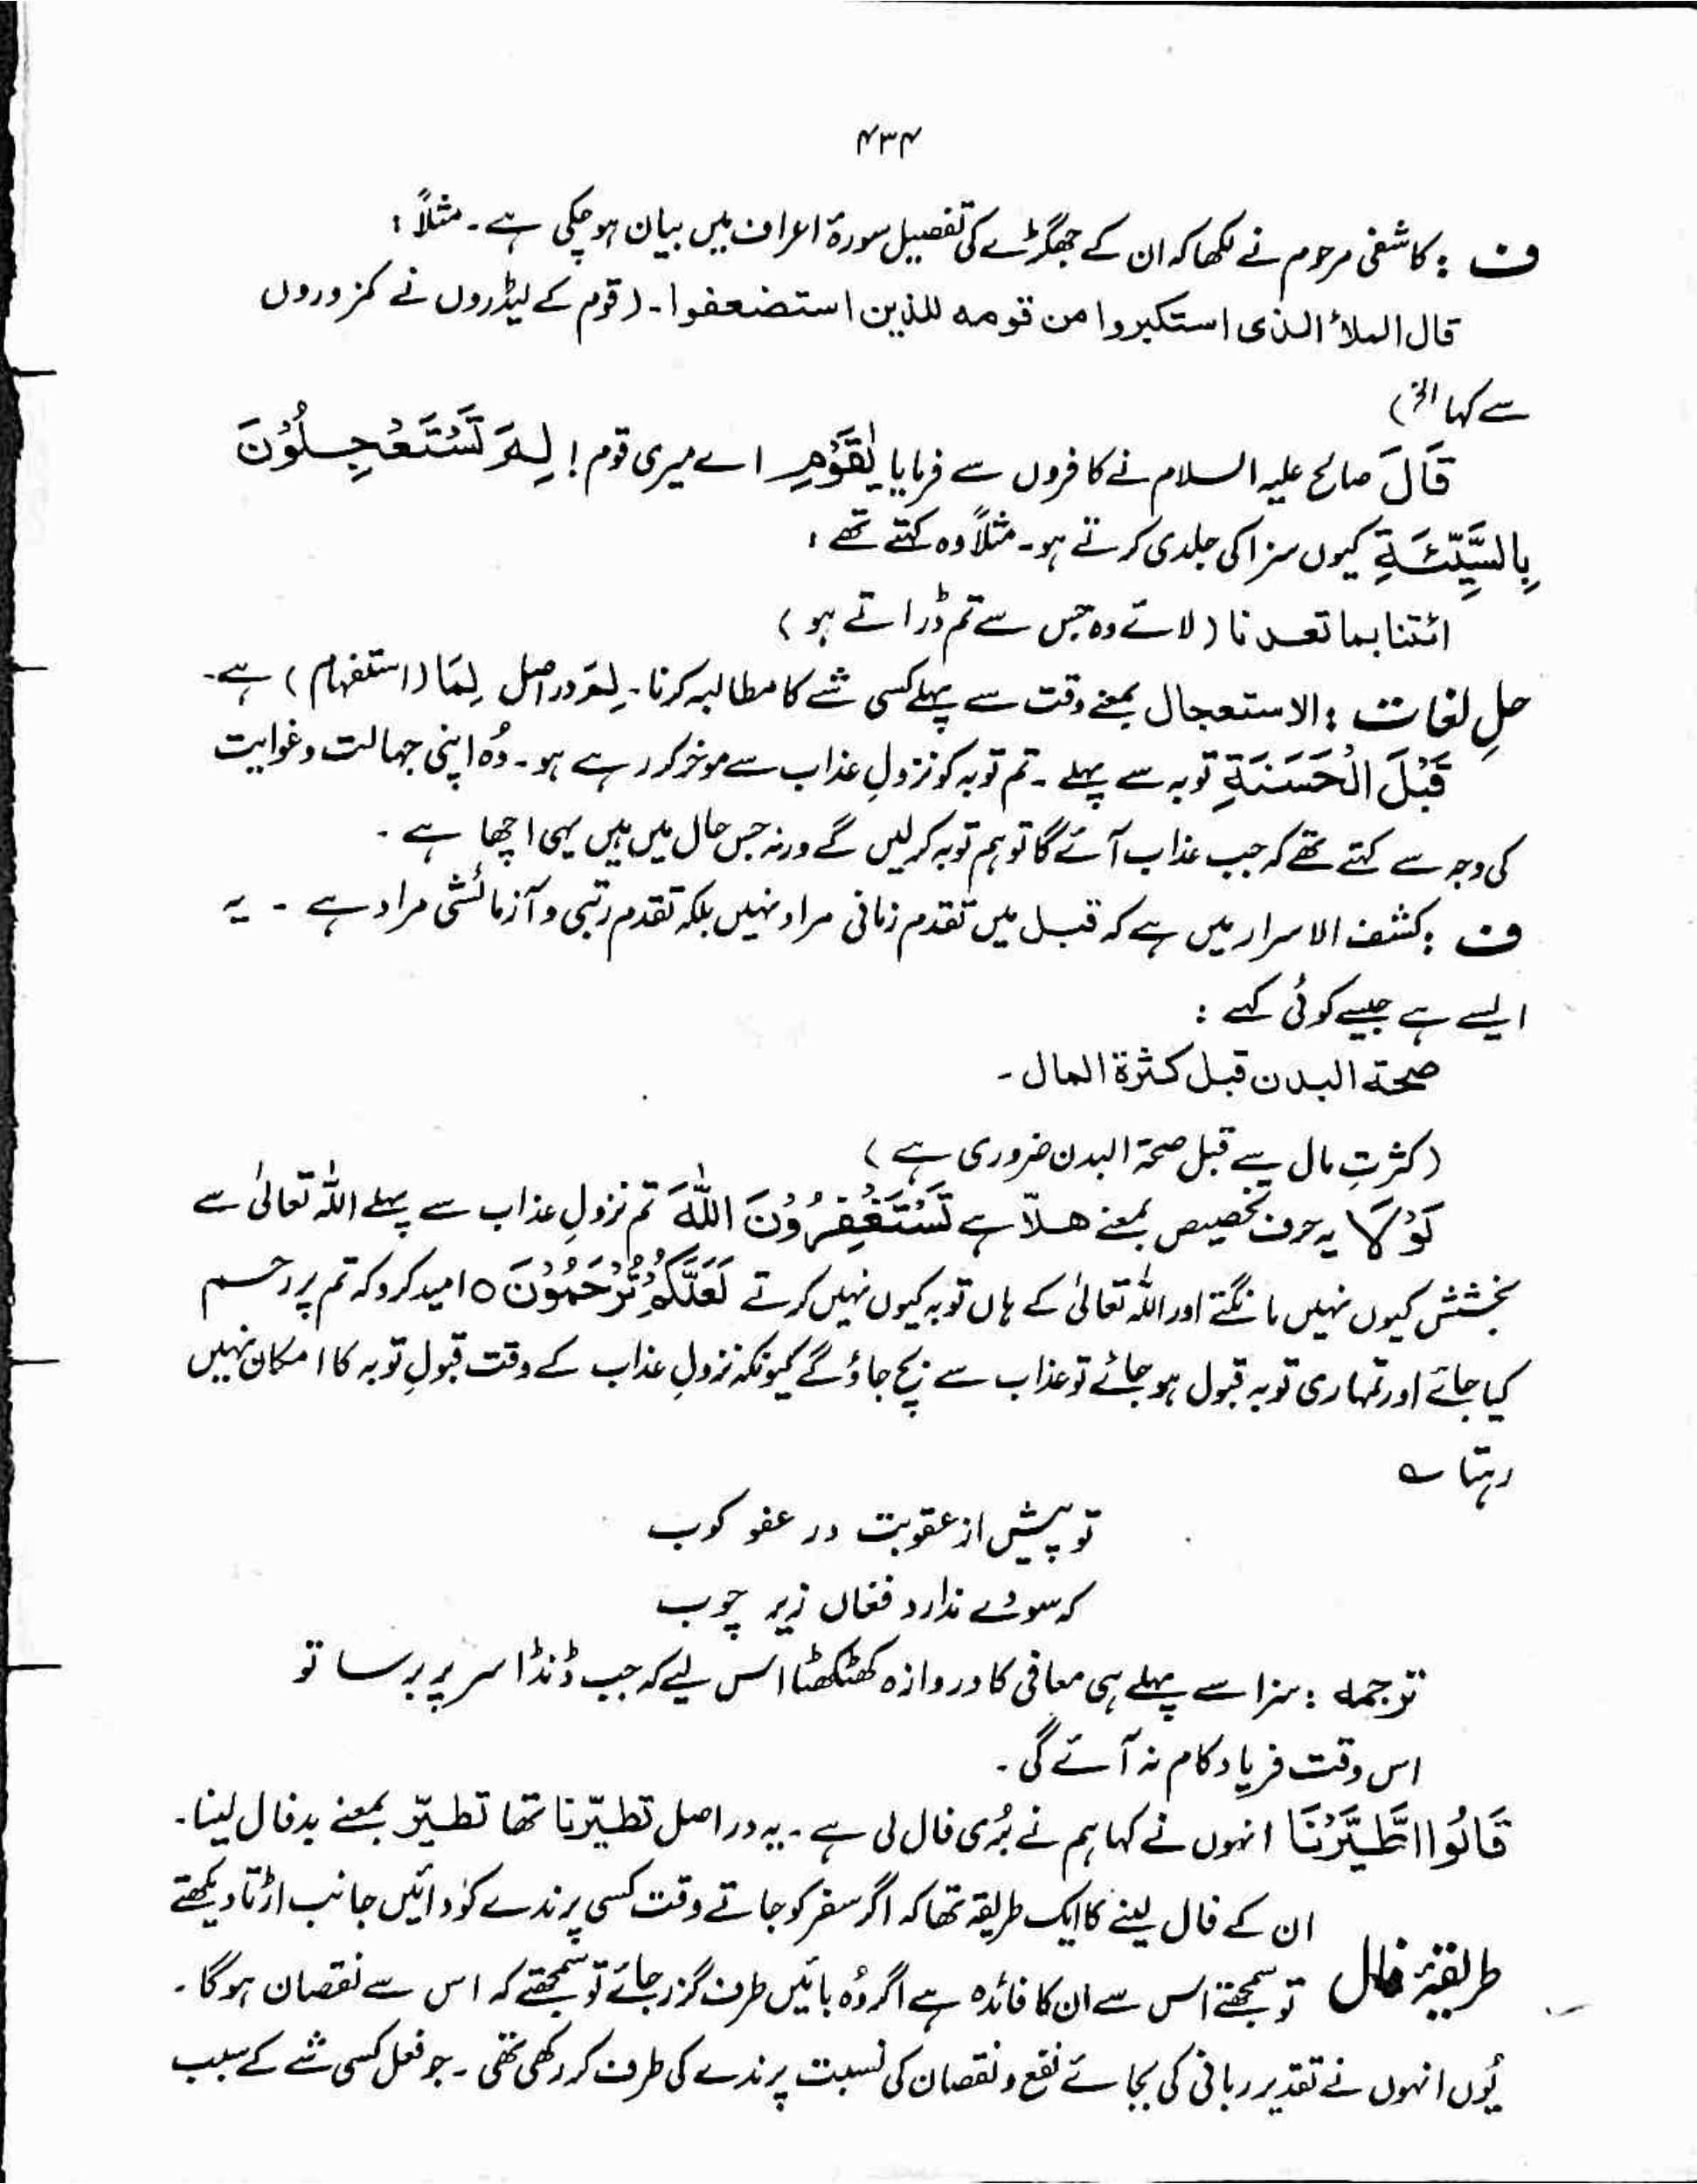 ۴۳۴
ف : کاشفی مرحوم نے لکھا کہ ان کے جھگڑے کی تفصیل سورۂ اعراف میں بیان ہو چکی ہے۔ مثلاً :
قال الملأ الذی استکبروا من قومه للذین استضعفوا۔ (قوم کے لیڈروں نے کمزوروں
سے کہا الخ)
قَالَ صالح علیہ السلام نے کافروں سے فرمایا یٰقَوْمِ اے میری قوم! لِمَ تَسْتَعْجِلُوْنَ
بِالسَّيِّئَةِ کیوں سزا کی جلدی کرتے ہو۔ مثلاً وہ کہتے تھے :
ائتنا بما تعدنا (لائے وہ جس سے تم ڈراتے ہو)
حلِ لغات : الاستعجال بمعنے وقت سے پہلے کسی شے کا مطالبہ کرنا۔ لِمَ دراصل لِمَا (استفہام) ہے۔
قَبْلَ الْحَسَنَةِ توبہ سے پہلے ۔ تم توبہ کو نزولِ عذاب سے موخر کر رہے ہو۔ وُہ اپنی جہالت و غوایت
کی وجہ سے کہتے تھے کہ جب عذاب آئے گا تو ہم توبہ کر لیں گے ورنہ جس حال میں ہیں یہی اچھا ہے ۔
ف : کشف الاسرار میں ہے کہ قبل میں تقدم زمانی مراد نہیں بلکہ تقدم رتبی و آزمائشی مراد ہے ۔ یہ
ایسے ہے جیسے کوئی کہے :
صحة البدن قبل کثرة المال ۔
(کثرتِ مال سے قبل صحۃ البدن ضروری ہے)
لَوْلَا یہ حرف تخصیص بمعنے ھلاّ ہے تَسْتَغْفِرُوْنَ اللّٰهَ تم نزولِ عذاب سے پہلے اللہ تعالیٰ سے
بخشش کیوں نہیں مانگتے اور اللہ تعالیٰ کے ہاں توبہ کیوں نہیں کرتے لَعَلَّكُمْ تُرْحَمُوْنَ ○ امید کرو کہ تم پر رحم
کیا جائے اور تمہاری توبہ قبول ہو جائے تو عذاب سے بچ جاؤ گے کیونکہ نزولِ عذاب کے وقت قبولِ توبہ کا امکان نہیں
رہتا ؎
تو پیش از عقوبت در عفو کوب
کہ سودے ندارد فغاں زیر چوب
ترجمه : سزا سے پہلے ہی معافی کا دروازہ کھٹکھٹا اس لیے کہ جب ڈنڈا سر پر برسا تو
اس وقت فریاد کام نہ آئے گی ۔
قَالُوا اطَّيَّرْنَا انہوں نے کہا ہم نے بُری فال لی ہے ۔ یہ در اصل تطیّرنا تھا تطیّر بمعنے بدفال لینا۔
ان کے فال لینے کا ایک طریقہ تھا کہ اگر سفر کو جاتے وقت کسی پرندے کو دائیں جانب اڑتا دیکھتے
طریقۂ فال تو سمجھتے اس سے ان کا فائدہ ہے اگر وُہ بائیں طرف گزر جائے تو سمجھتے کہ اس سے نقصان ہوگا ۔
یُوں انہوں نے تقدیر ربانی کی بجائے نفع و نقصان کی نسبت پرندے کی طرف کر رکھی تھی ۔ جو فعل کسی شے کے سبب